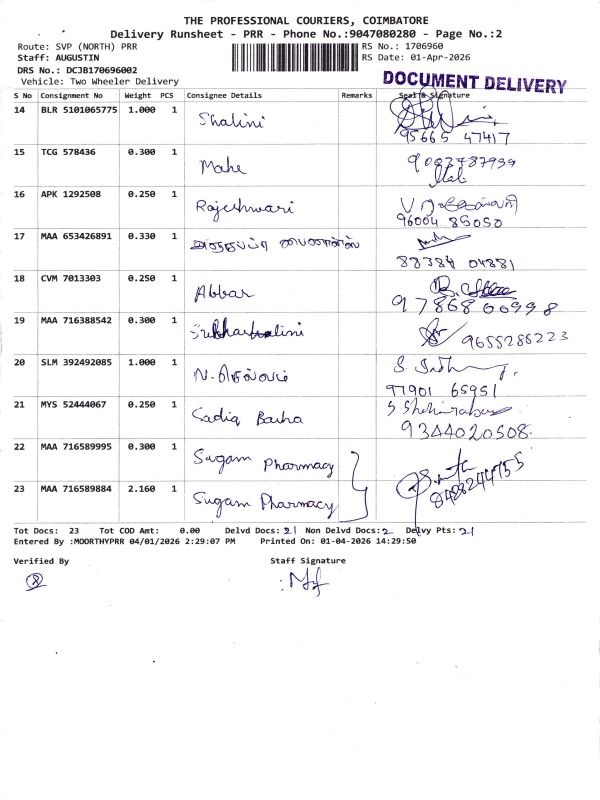 THE PROFESSIONAL COURIERS, COIMBATORE
Delivery Runsheet - PRR - Phone No.:9047080280 - Page No.:2
Route: SVP (NORTH) PRR RS No.: 1706960
Staff: AUGUSTIN RS Date: 01-Apr-2026
DRS No.: DCJB170696002
Vehicle: Two Wheeler Delivery
DOCUMENT DELIVERY
S No Consignment No Weight PCS Consignee Details Remarks Seal & Signature
14 BLR 5101065775 1.000 1 Shalini
95665 47417
15 TCG 578436 0.300 1 Mahe
9083787999
16 APK 1292508 0.250 1 Rajeshwari
96004 85050
17 MAA 653426891 0.330 1
88384 04881
18 CVM 7013303 0.250 1 Abbas
97868 66998
19 MAA 716388542 0.300 1
9655285223
20 SLM 392492085 1.000 1
97901 65951
21 MYS 52444067 0.250 1 Sadiq Basha
9344020508
22 MAA 716589995 0.300 1 Sugam Pharmacy
8428244755
23 MAA 716589884 2.160 1 Sugam Pharmacy
Tot Docs: 23 Tot COD Amt: 0.00 Delvd Docs: 21 Non Delvd Docs: 2 Delvy Pts: 21
Entered By :MOORTHYPRR 04/01/2026 2:29:07 PM Printed On: 01-04-2026 14:29:50
Verified By Staff Signature